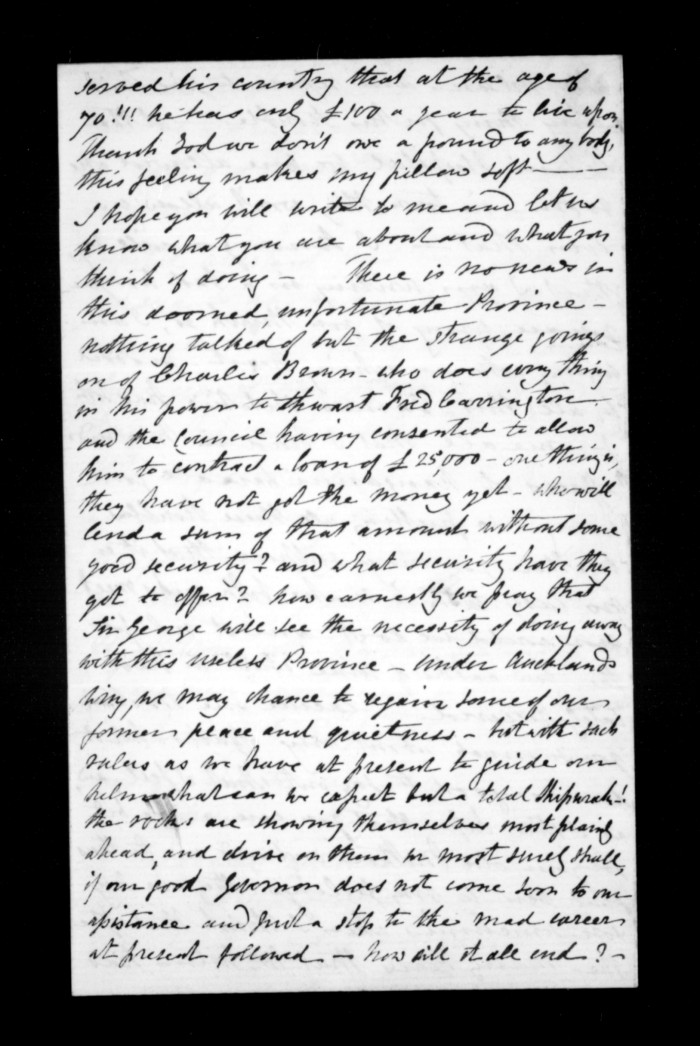 served his country that at the age of
70!!! he has only £100 a year to live upon,
Thank God we don't owe a pound to any body,
this feeling makes my pillow soft —
I hope you will write to me and let us
know what you are about and what you
think of doing - There is no news in
this doomed, unfortunate Province -
nothing talked of but the strange goings
on of Charlie Brown - who does every thing
in his power to thwart Fred Carrington -
and the Council having consented to allow
him to contract a loan of £25,000 - one thing is,
they have not got the money yet - who will
lend a sum of that amount without some
good security? and what security have they
got to offer? how earnestly we pray that
Sir George will see the necessity of doing away
with this useless Province - under Aucklands
wing, we may chance to regain some of our
former peace and quietness - but with such
rulers as we have at present to guide our
helm what can we expect but a total Shipwreck -!
the rocks are showing themselves most plainly
ahead, and drive on them we most surely shall,
if our good Governor does not come soon to our
assistance and put a stop to the mad career
at present followed - how will it all end? -